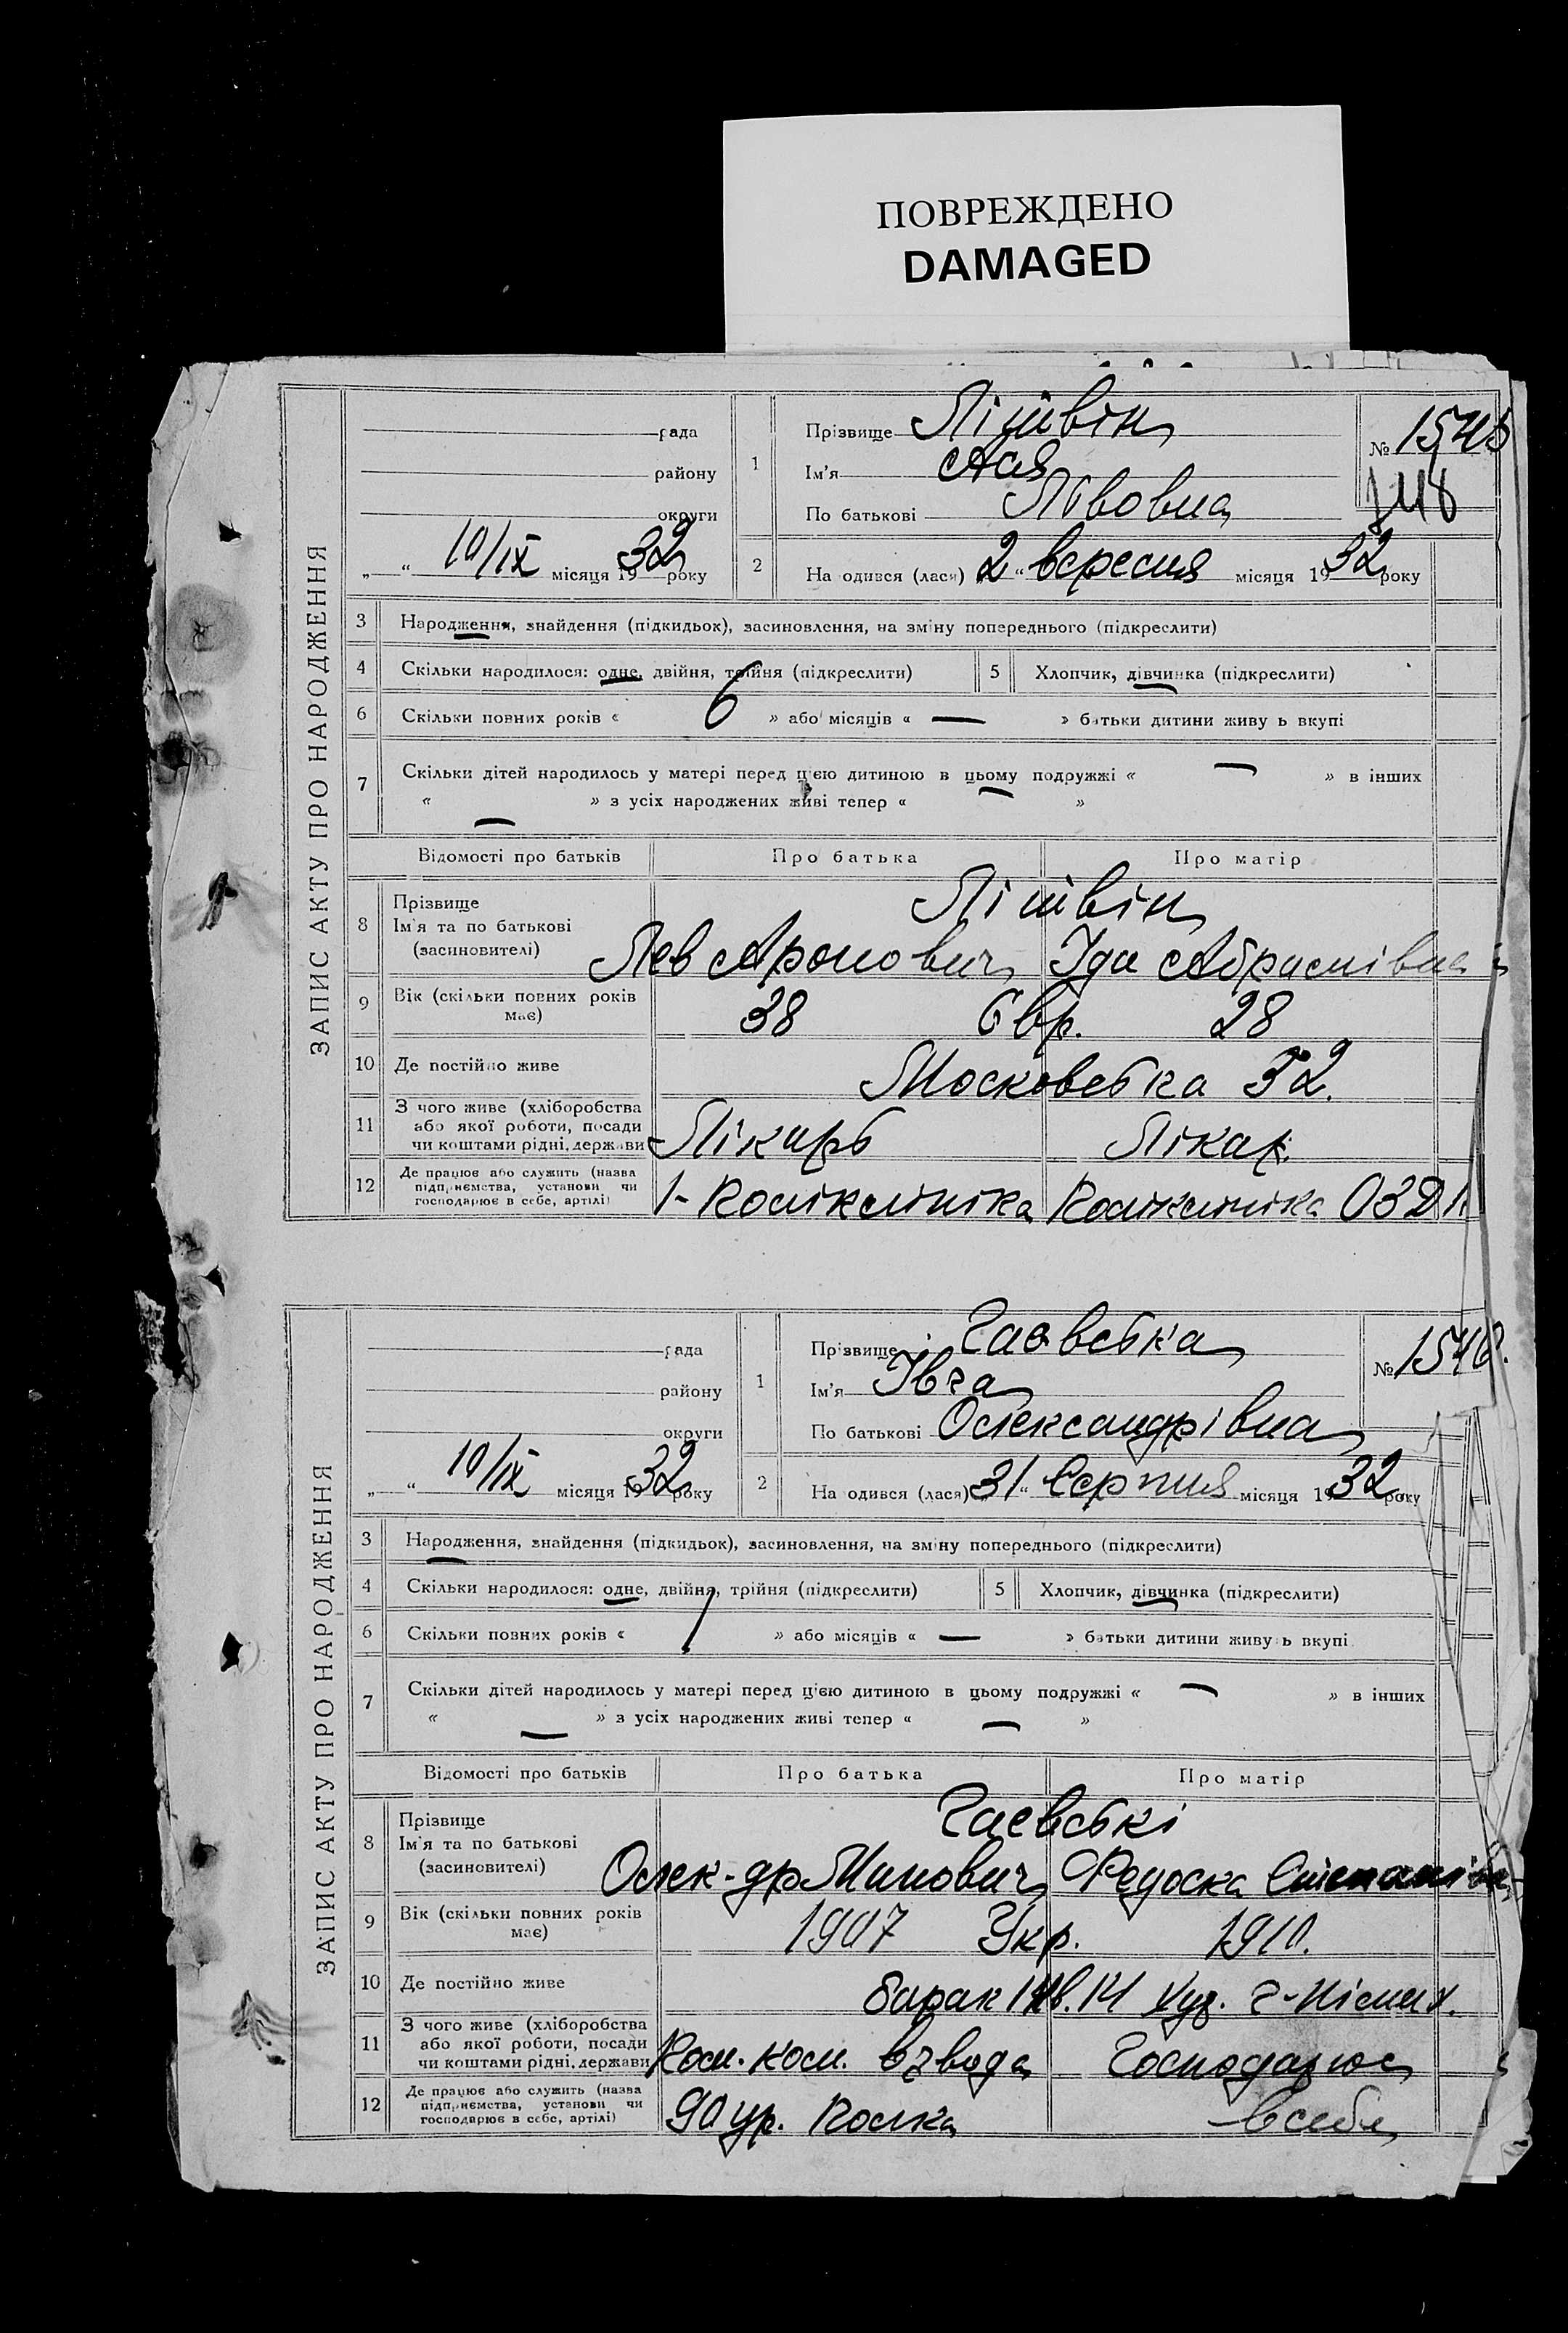 ПОВРЕЖДЕНО
DAMAGED
ЗАПИС АКТУ ПРО НАРОДЖЕННЯ
рада
району
округи
„ “ 10/IX місяця 1932 року
1
Прізвище Літвін
Ім’я Ася
По батькові Львовна
№ 1545
2
На одився (лася) 2 “ вересня місяця 1932 року
3 Народження, знайдення (підкидьок), засиновлення, на зміну попереднього (підкреслити)
4 Скільки народилося: одне, двійня, трійня (підкреслити) 5 Хлопчик, дівчинка (підкреслити)
6 Скільки повних років « 6 » або місяців « — » батьки дитини живу ь вкупі
7 Скільки дітей народилось у матері перед цією дитиною в цьому подружжі « — » в інших
« — » з усіх народжених живі тепер « — »
Відомості про батьків Про батька Про матір
8 Прізвище
Ім’я та по батькові
(засиновителі)
Літвін
Лев Аронович Іда Абрамівна
9 Вік (скільки повних років має)
38 Євр. 28
10 Де постійно живе Московська 32.
11 З чого живе (хліборобства
або якої роботи, посади
чи коштами рідні, держави
Лікарь Лікар.
12 Де працює або служить (назва
підприємства, установи чи
господарює в себе, артілі)
1-
ЗАПИС АКТУ ПРО НАРОДЖЕННЯ
рада
району
округи
„ “ 10/IX місяця 1932 року
1
Прізвище Гаєвська
Ім’я Івга
По батькові Олександрівна
№ 1546.
2
На одився (лася) 31 “ Серпня місяця 1932 року
3 Народження, знайдення (підкидьок), засиновлення, на зміну попереднього (підкреслити)
4 Скільки народилося: одне, двійня, трійня (підкреслити) 5 Хлопчик, дівчинка (підкреслити)
6 Скільки повних років « 1 » або місяців « — » батьки дитини живу ь вкупі
7 Скільки дітей народилось у матері перед цією дитиною в цьому подружжі « — » в інших
« — » з усіх народжених живі тепер « — »
Відомості про батьків Про батька Про матір
8 Прізвище
Ім’я та по батькові
(засиновителі)
Гаєвські
Олек-др Минович Федоска Степанівна
9 Вік (скільки повних років має)
1907 Укр. 1910.
10 Де постійно живе барак 14
11 З чого живе (хліборобства
або якої роботи, посади
чи коштами рідні, держави
Пом. ком. взвода Господарює
12 Де працює або служить (назва
підприємства, установи чи
господарює в себе, артілі)
90 Полка в себе